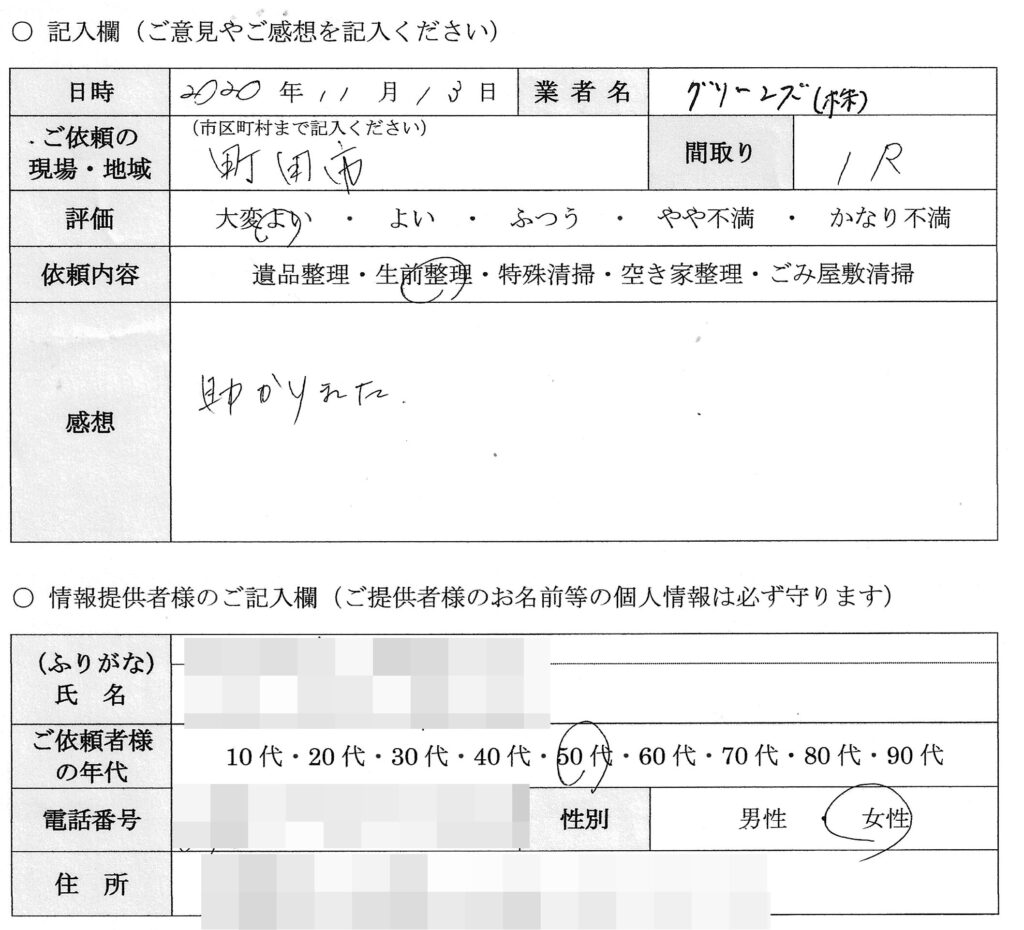 ○ 記入欄（ご意見やご感想を記入ください）
日時 2020 年 11 月 13 日 業者名 グリーンズ(株)
ご依頼の現場・地域 （市区町村まで記入ください） 町田市 間取り 1R
評価 大変よい ・ よい ・ ふつう ・ やや不満 ・ かなり不満
依頼内容 遺品整理・生前整理・特殊清掃・空き家整理・ごみ屋敷清掃
感想 助かりました.
○ 情報提供者様のご記入欄（ご提供者様のお名前等の個人情報は必ず守ります）
（ふりがな）
氏 名
ご依頼者様の年代 10代・20代・30代・40代・50代・60代・70代・80代・90代
電話番号 性別 男性 ・ 女性
住 所